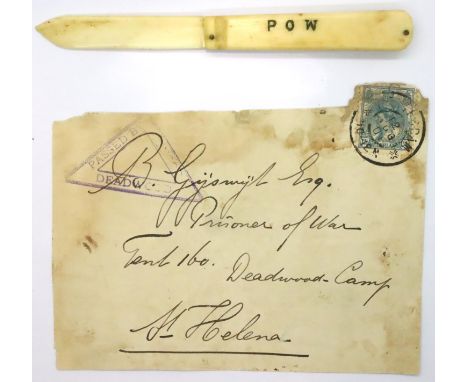 POW
PASSED
DEADWOOD
B. Gijswijt Esq.
Prisoner of War
Tent 160. Deadwood-Camp
St Helena.